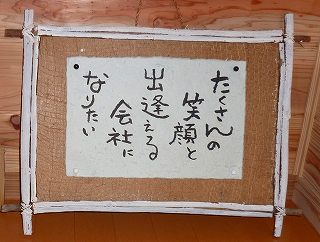 たくさんの
笑顔と
出逢える
会社に
なりたい